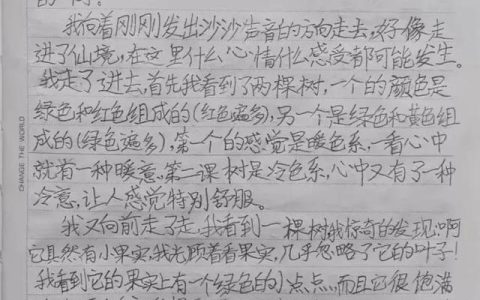 我向着刚刚发出沙沙声音的方向走去,好像走
进了仙境,在这里什么心情什么感受都可能发生。
我走了进去,首先我看到了两棵树,一个的颜色是
绿色和红色组成的(红色遍多),另一个是绿色和黄色组
成的(绿色遍多),第一个的感觉是暖色系,一看心中
就有一种暖意。第二课树是冷色系,心中又有了一种
冷意,让人感觉特别舒服。
我又向前走了走,我看到一棵树我惊奇的发现:啊
它具然有小果实,我光顾着看果实,几乎忽略了它的叶子!
我看到它的果实上有一个绿色的小点点,而且它很饱满
CHANGE THE WORLD